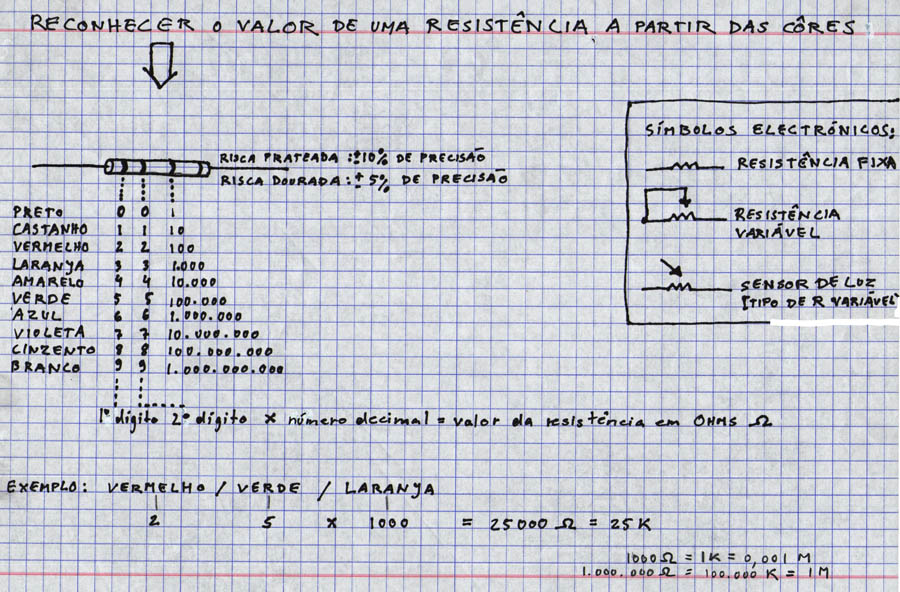 RECONHECER O VALOR DE UMA RESISTÊNCIA A PARTIR DAS CÔRES
RISCA PRATEADA : ±10% DE PRECISÃO
RISCA DOURADA : ± 5% DE PRECISÃO
PRETO 0 0 1
CASTANHO 1 1 10
VERMELHO 2 2 100
LARANYA 3 3 1.000
AMARELO 4 4 10.000
VERDE 5 5 100.000
AZUL 6 6 1.000.000
VIOLETA 7 7 10.000.000
CINZENTO 8 8 100.000.000
BRANCO 9 9 1.000.000.000
1º dígito 2º dígito x número decimal = valor da resistência em OHMS Ω
SÍMBOLOS ELECTRÓNICOS:
RESISTÊNCIA FIXA
RESISTÊNCIA
VARIÁVEL
SENSOR DE LUZ
[TIPO DE R VARIÁVEL]
EXEMPLO: VERMELHO / VERDE / LARANYA
2 5 x 1000 = 25000 Ω = 25 K
1000 Ω = 1K = 0,001 M
1.000.000 Ω = 100.000 K = 1M